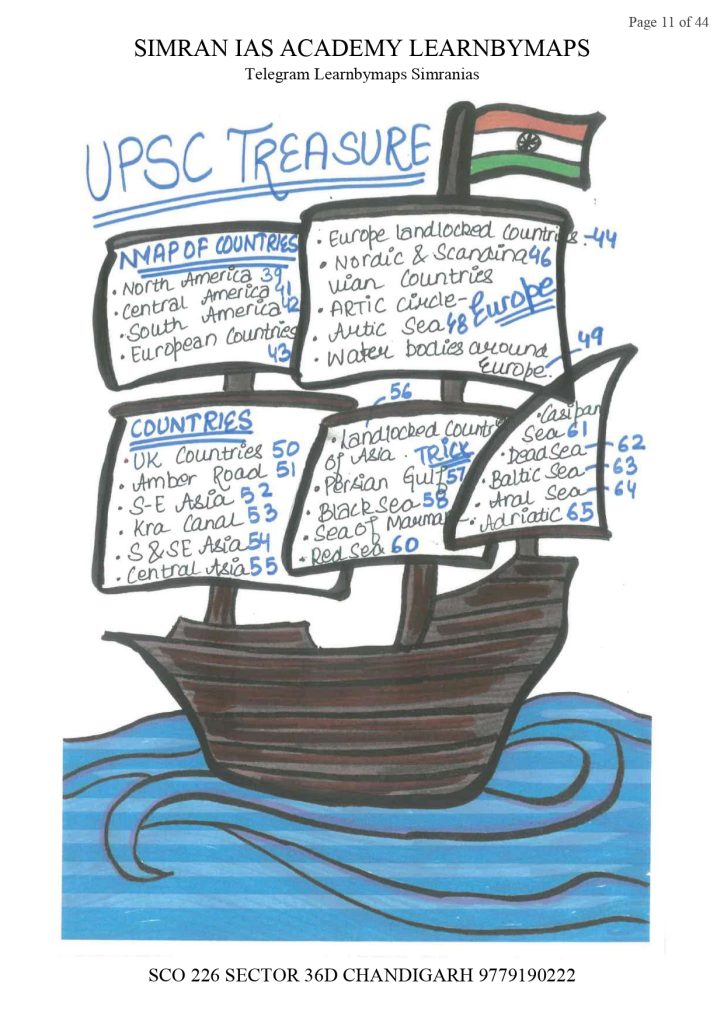 Page 11 of 44
SIMRAN IAS ACADEMY LEARNBYMAPS
Telegram Learnbymaps Simranias
UPSC TREASURE
MAP OF COUNTRIES
• North America 39
• Central America 41
• South America 42
• European Countries
43
• Europe landlocked Countries. 44
• Nordic & Scandina 46
vian Countries
• ARTIC Circle- Europe
• Artic Sea 48
• Water bodies around
Europe. 49
COUNTRIES
• UK Countries 50
• Amber Road 51
• S-E Asia 52
• Kra Canal 53
• S & SE Asia 54
• Central Asia 55
56
• Landlocked Countr
of Asia. TRICK
• Persian Gulf 57
• Black Sea 58
• Sea Of Marmar
• Red Sea 60
• Casipan
Sea 61
• Dead Sea 62
• Baltic Sea 63
• Aral Sea 64
• Adriatic 65
SCO 226 SECTOR 36D CHANDIGARH 9779190222